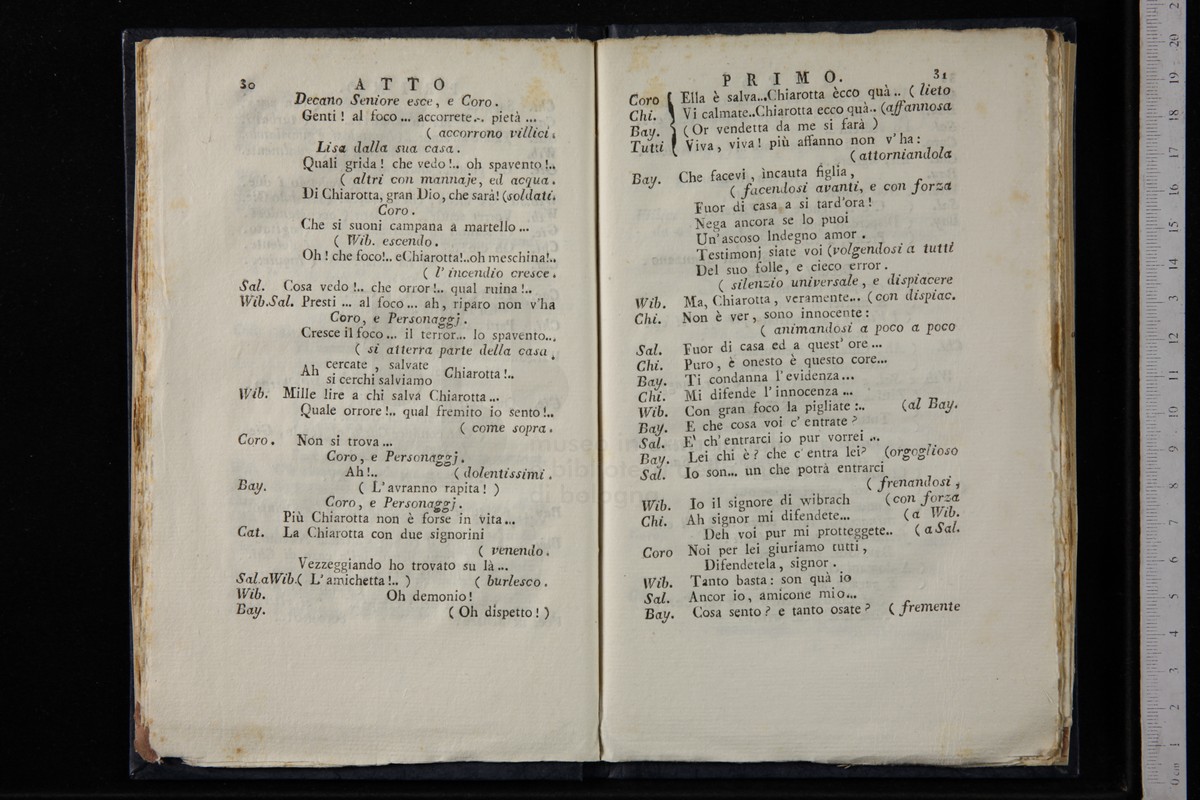 30 ATTO
Decano Seniore esce, e Coro.
Genti ! al foco ... accorrete... pietà ...
( accorrono villici.
Lisa dalla sua casa.
Quali grida ! che vedo !.. oh spavento !..
( altri con mannaje, ed acqua.
Di Chiarotta, gran Dio, che sarà! (soldati.
Coro.
Che si suoni campana a martello ...
( Wib. escendo.
Oh ! che foco!.. eChiarotta!..oh meschina!..
( l' incendio cresce.
Sal. Cosa vedo !.. che orror !.. qual ruina !..
Wib.Sal. Presti ... al foco ... ah, riparo non v'ha
Coro, e Personaggj.
Cresce il foco ... il terror... lo spavento...
( si atterra parte della casa.
Ah cercate , salvate Chiarotta !..
si cerchi salviamo
Wib. Mille lire a chi salva Chiarotta ...
Quale orrore !.. qual fremito io sento !..
( come sopra.
Coro. Non si trova ...
Coro, e Personaggj.
Ah !.. ( dolentissimi.
Bay. ( L' avranno rapita ! )
Coro, e Personaggj.
Più Chiarotta non è forse in vita ...
Cat. La Chiarotta con due signorini
( venendo.
Vezzeggiando ho trovato su là ...
Sal.aWib.( L' amichetta !.. ) ( burlesco.
Wib. Oh demonio !
Bay. ( Oh dispetto ! )
PRIMO. 31
Coro Ella è salva...Chiarotta ècco quà .. ( lieto
Chi. Vi calmate..Chiarotta ecco quà.. (affannosa
Bay. ( Or vendetta da me si farà )
Tutti Viva, viva ! più affanno non v' ha :
( attorniandola
Bay. Che facevi , incauta figlia ,
( facendosi avanti, e con forza
Fuor di casa a si tard'ora !
Nega ancora se lo puoi
Un' ascoso Indegno amor .
Testimonj siate voi (volgendosi a tutti
Del suo folle, e cieco error .
( silenzio universale, e dispiacere
Wib. Ma, Chiarotta , veramente... (con dispiac.
Chi. Non è ver, sono innocente :
( animandosi a poco a poco
Sal. Fuor di casa ed a quest' ore ...
Chi. Puro, è onesto è questo core...
Bay. Ti condanna l' evidenza ...
Chi. Mi difende l' innocenza ...
Wib. Con gran foco la pigliate :.. (al Bay.
Bay. E che cosa voi c' entrate ?
Sal. E' ch' entrarci io pur vorrei ...
Bay. Lei chi è ? che c' entra lei? (orgoglioso
Sal. Io son... un che potrà entrarci
( frenandosi ,
Wib. Io il signore di wibrach (con forza
Chi. Ah signor mi difendete... (a Wib.
Deh voi pur mi protteggete.. (a Sal.
Coro Noi per lei giuriamo tutti ,
Difendetela , signor .
Wib. Tanto basta : son quà io
Sal. Ancor io, amicone mio...
Bay. Cosa sento ? e tanto osate ? ( fremente